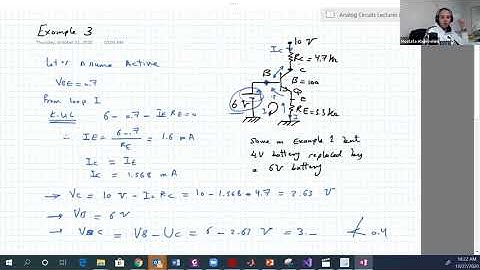 Example 3
Analog Circuits Lectures
Thursday, October
Let's Assume Active
VBE = .7
From loop I
K.V.L 6 - 0.7 - IE RE = 0
∴ IE = 6-.7 / RE = 1.6 mA
IC ≈ IE
IC = 1.568 mA
→ VC = 10 V - IC RC = 10 - 1.568 * 4.7 = 2.63 V
→ VB = 6 V
→ VBC = VB - VC = 6 - 2.63 V = 3.- ≮ 0.4
10 V
IC
RC = 4.7 k
C
B
β = 100
6 V
I
E
RE = 3.3 k
Same as Example 2 but
4V battery replaced by
a 6V battery
10:22 AM
10/27/2020